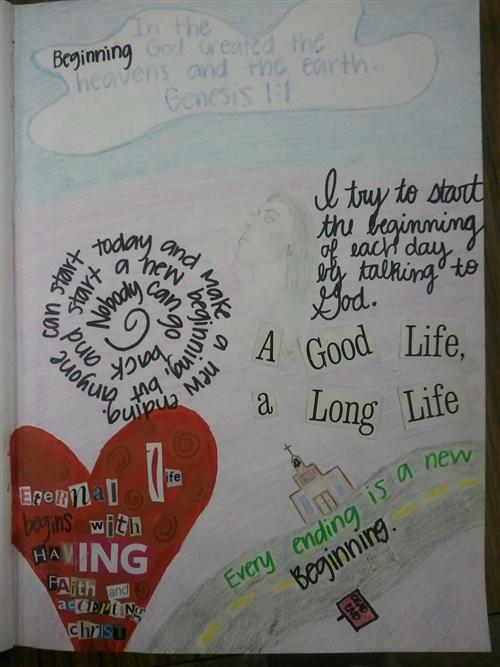 In the
Beginning God created the
heavens and the earth.
Genesis 1:1
I try to start
the beginning
of each day
by talking to
God.
Nobody can go back and start a new beginning, but anyone can start today and make a new ending.
A Good Life,
a Long Life
Eternal Life
begins with
HAVING
FAith and
accEPTING
chriST
Every ending is a new
Beginning.
DEAD
END